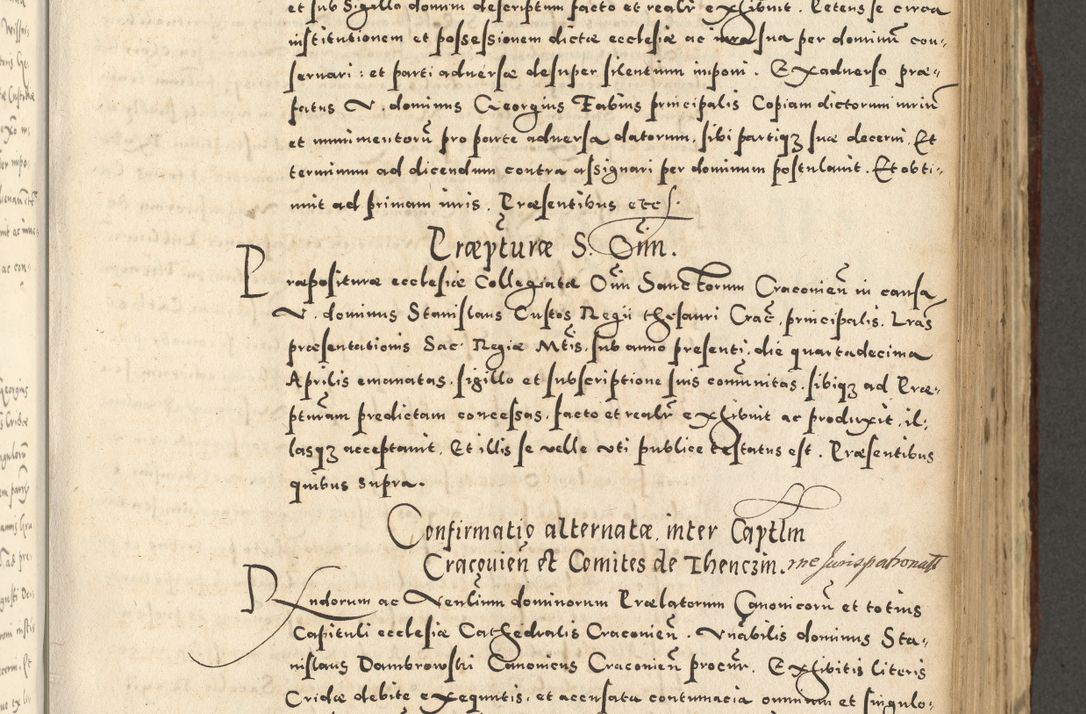 et sub Sigillo domini descriptum facto et realr exhibuit. Petens se circa
institutionem et possessionem dictæ ecclesiæ ac iura sua per dominū con-
seruari: et parti aduersæ desuper silentium inponi. Ex aduerso præ-
fatus V. dominus Georgius Fabius principalis Copiam dictorum iuriū
et munimentorū pro parte aduersa datorum, sibi partiqȝ suæ decerni. Et
terminum ad dicendum contra assignari per dominum postulauit. Et obti-
nuit ad primam iuris. Præsentibus
Præpturæ S. Oīm.
Præpositura ecclesiæ Collegiatæ Oīm Sanctorum Cracouieñ in causa
V. dominus Stanislaus Custos Regii thesauri Crac̄. principalis. Lras̄
præsentationis Sac: Regiæ Mtis. sub anno presenti, die quartadecima
Aprilis emanatas, sigillo et subscriptione suis cōmunitas, sibiqȝ ad Præ-
pturam predictam concessas, facto et realr̄ exhibuit ac produxit, il-
lasqȝ acceptauit. Et illis se velle vti publice testatus est. Præsentibus
quibus supra.
Confirmatio alternatæ inter Captlm
Cracouieñ et Comites de Thenczin. rne Jurispatronatt
Rndorum ac Venlium dominorum Prælatorum Canonicorū et totius
Capituli ecclesiæ Cathedralis Cracouieñ. Vnabilis dominus Sta-
nislaus Dambrowski Canonicus Cracouieñ procur̄. Exhibitis literis
Cridæ debite exequutis, et accusata contumacia omnium et singulo-